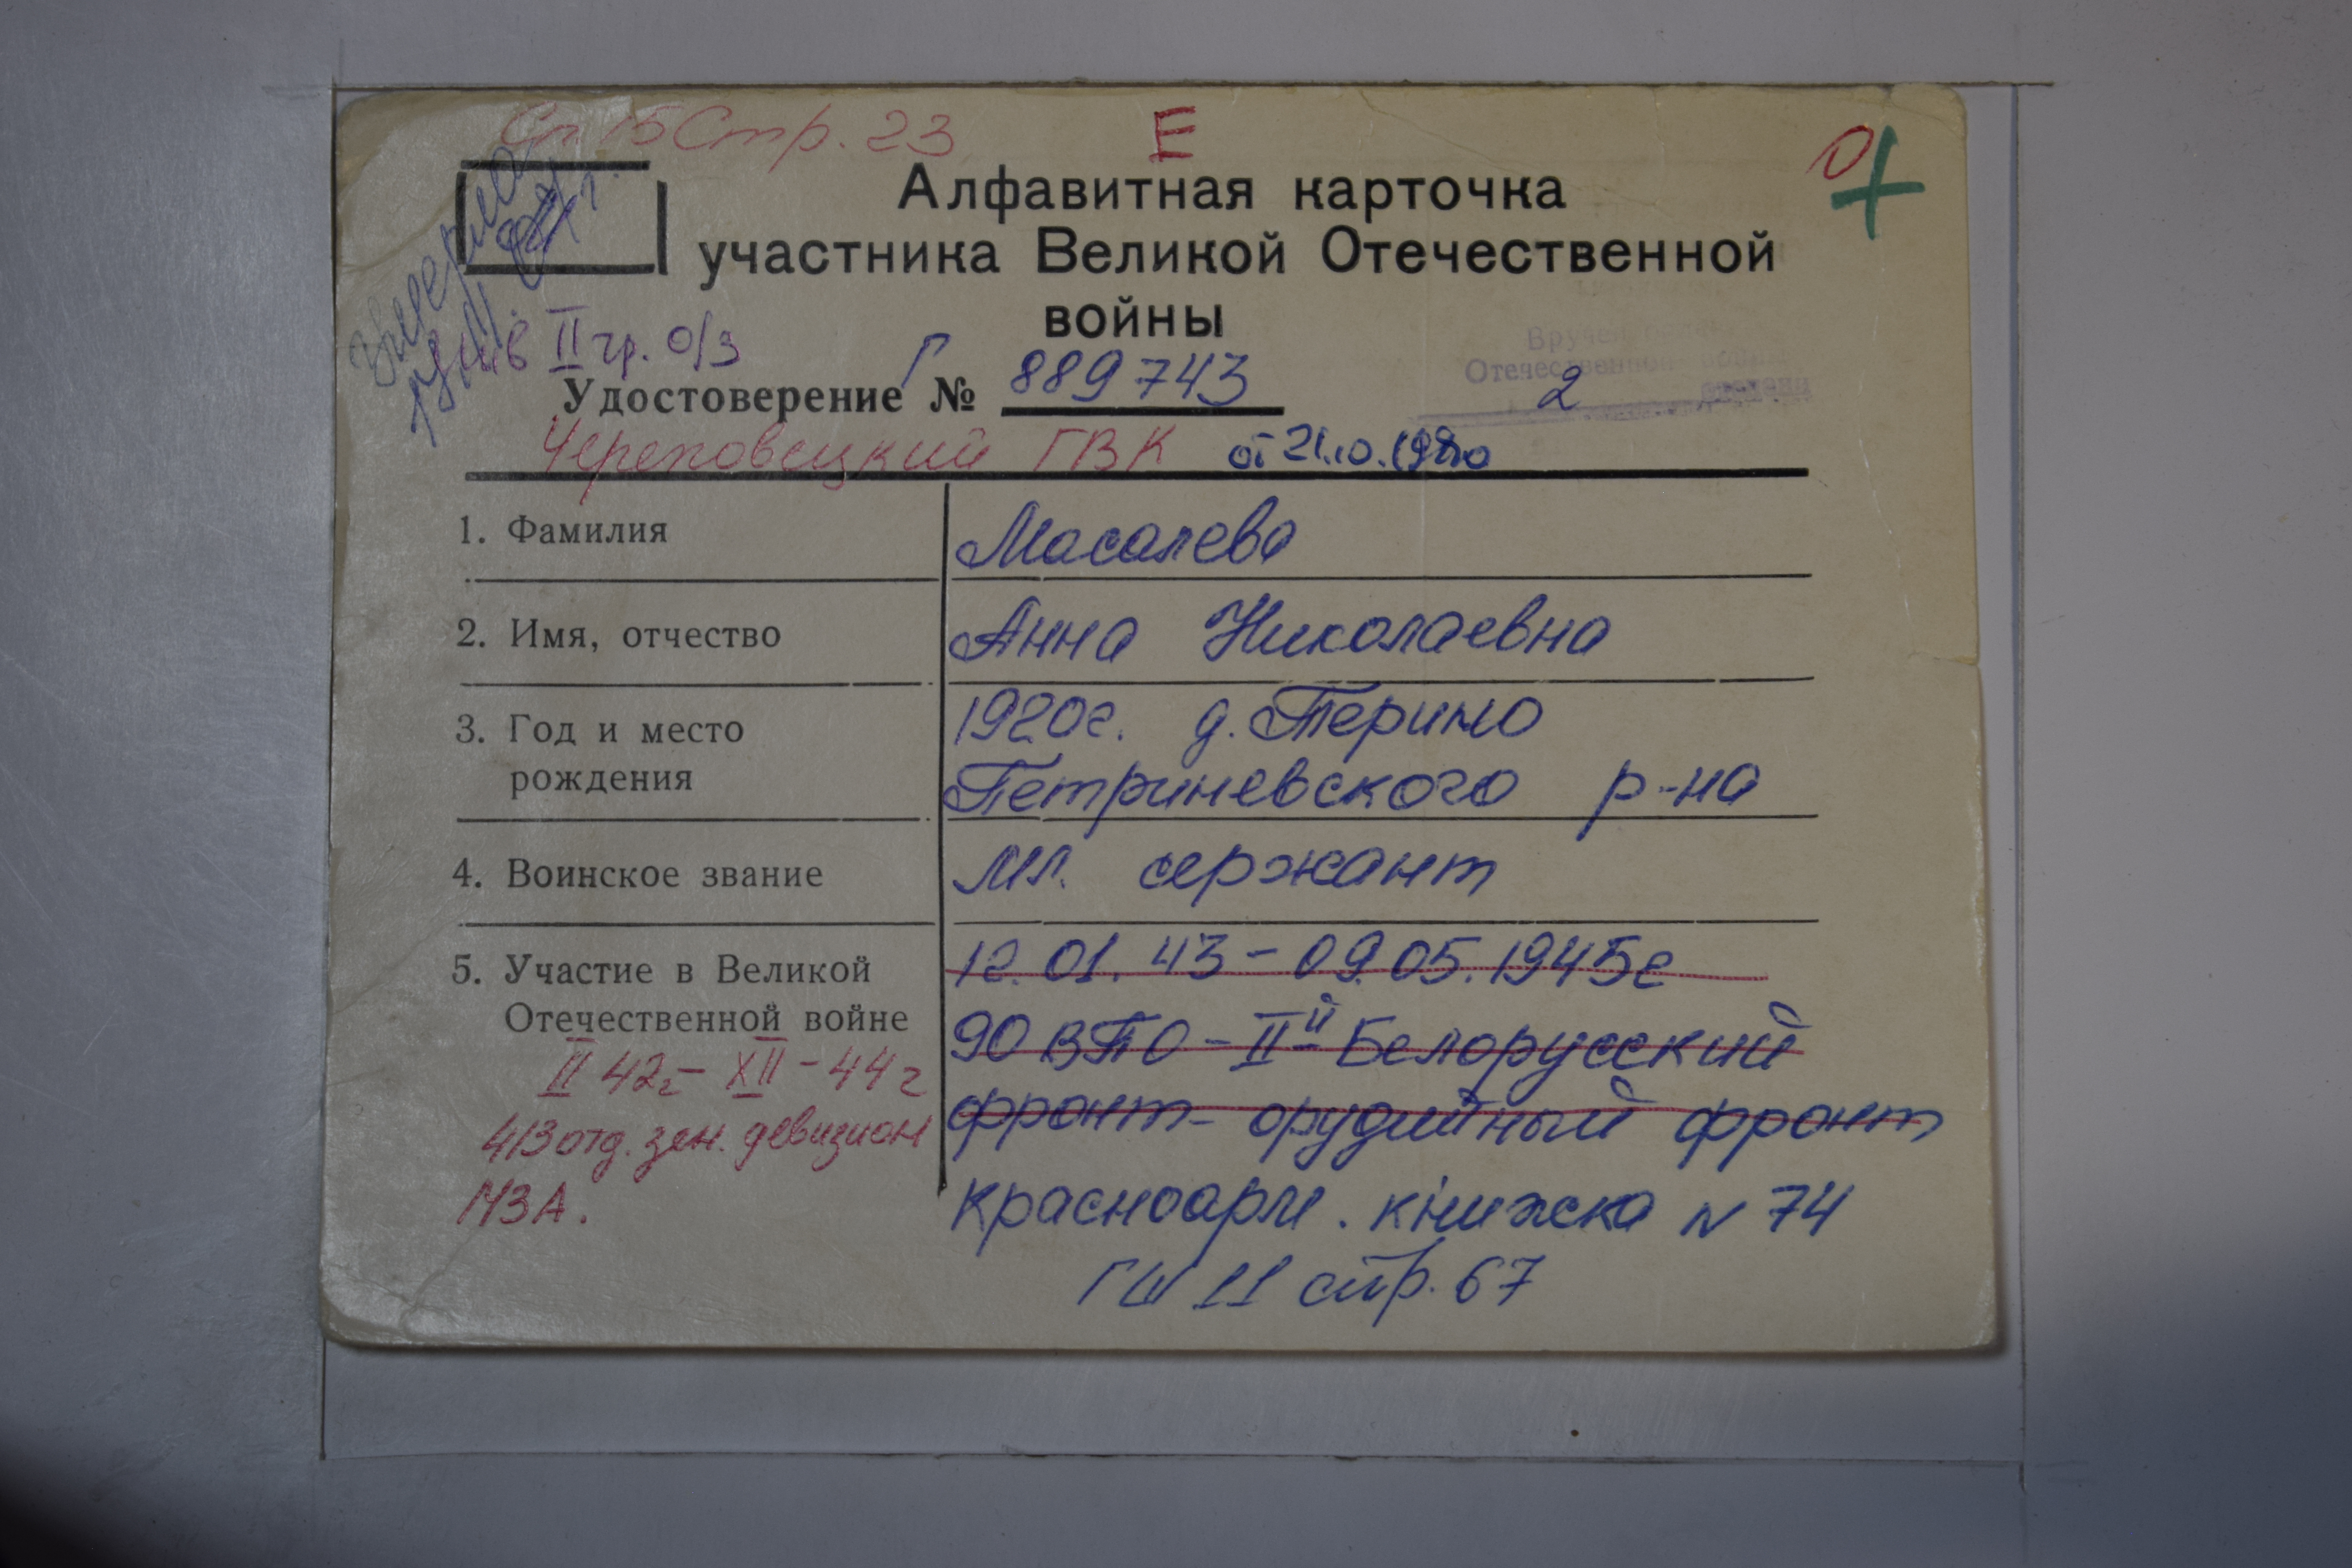 Сп 15 Стр. 23
Е
Алфавитная карточка
участника Великой Отечественной
войны
инв II гр. о/з
Удостоверение Г № 889743
Вручен
Отечественной войны
2 степени
Череповецкий ГВК от 21.10.1980
1. Фамилия Масалева
2. Имя, отчество Анна Николаевна
3. Год и место рождения 1920г. д. Терино
Петриневского р-на
4. Воинское звание мл. сержант
5. Участие в Великой Отечественной войне 12.01.43 - 09.05.1945г
90 ВПО - II й Белорусский
фронт - орудийный фронт
II 42г - XII - 44 г
413 отд. зен. девизион
МЗА.
Красноарм. книжка N 74
ГШ 11 стр. 67